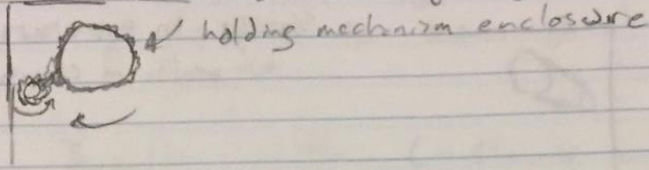 holding mechanism enclosure